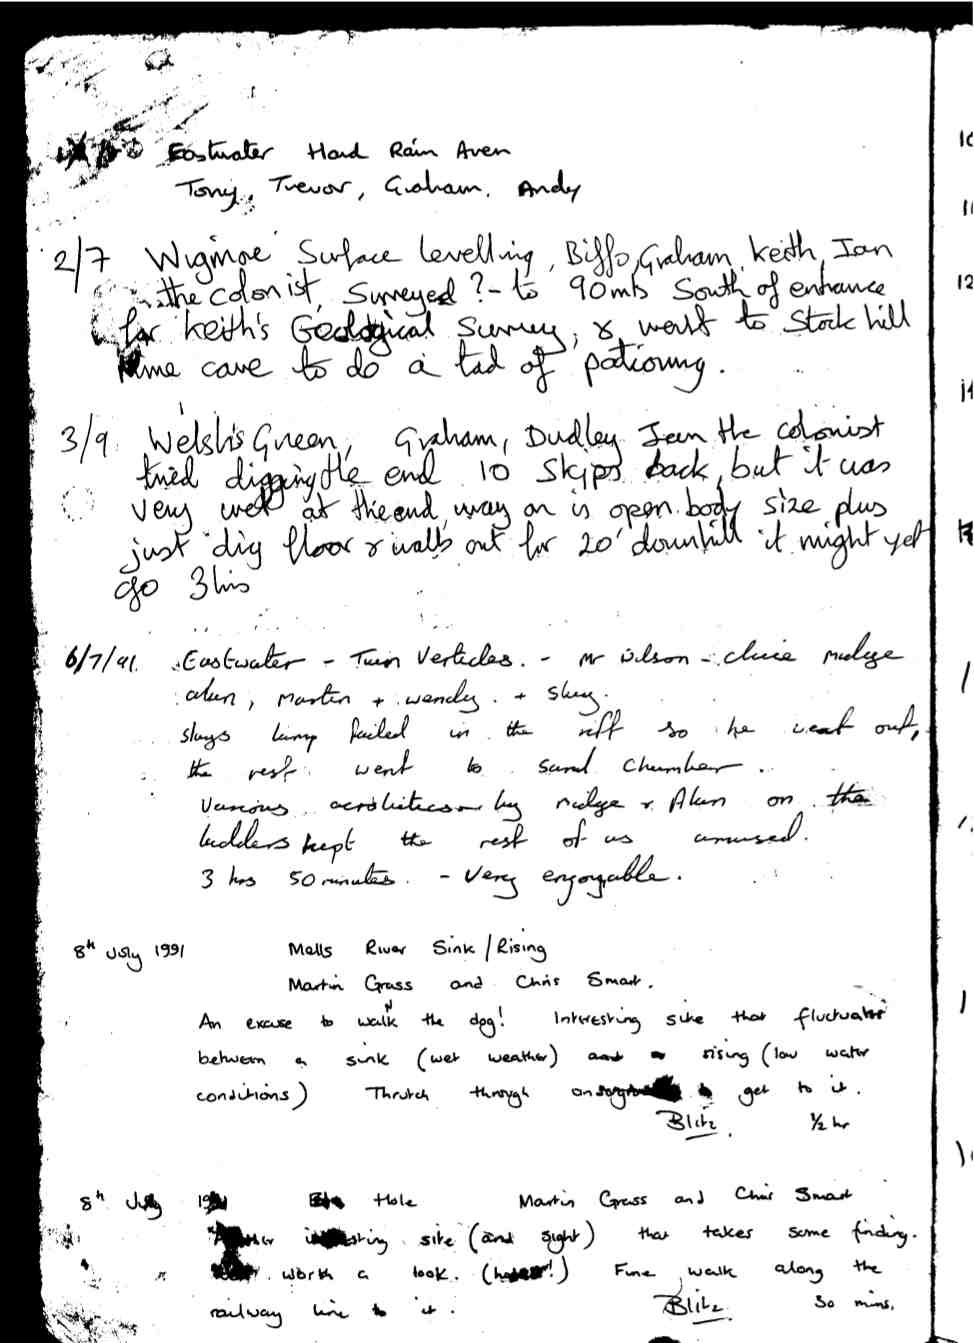 Eastwater Hard Rain Aven
Tony, Trevor, Graham. Andy
2/7 Wigmore Surface levelling, Biffo, Graham, Keith, Ian
the colonist, Surveyed ?- to 90mts South of entrance
for Keith's Geological Survey, & went to Stock hill
Mine cave to do a tad of pationing.
3/9 Welsh's Green, Graham, Dudley Jean the colonist
tried digging the end 10 Skips back, but it was
very wet at the end, way on is open body size plus
just dig floor & walls out for 20' downhill it might yet
go 3hrs
6/7/91. Eastwater - Twin Verticles. - Mr Wilson - midge
alan, Martin + wendy. + slug.
slugs lamp failed in the rift so he went out,
the rest went to sand chamber.
Various by midge & Alan on the
ladders kept the rest of us amused.
3 hrs 50 minutes. - Very enjoyable.
8th July 1991 Mells River Sink/Rising
Martin Grass and Chris Smart.
An excuse to walk the dog! Interesting site that fluctuates
between a sink (wet weather) and a rising (low water
conditions) Thrutch through to get to it.
Blitz. ½ hr
8th July 1991 Hole Martin Grass and Chris Smart
Another interesting site (and sight) that takes some finding.
worth a look. Fine walk along the
railway line to it. Blitz 30 mins.
10
11
12
14